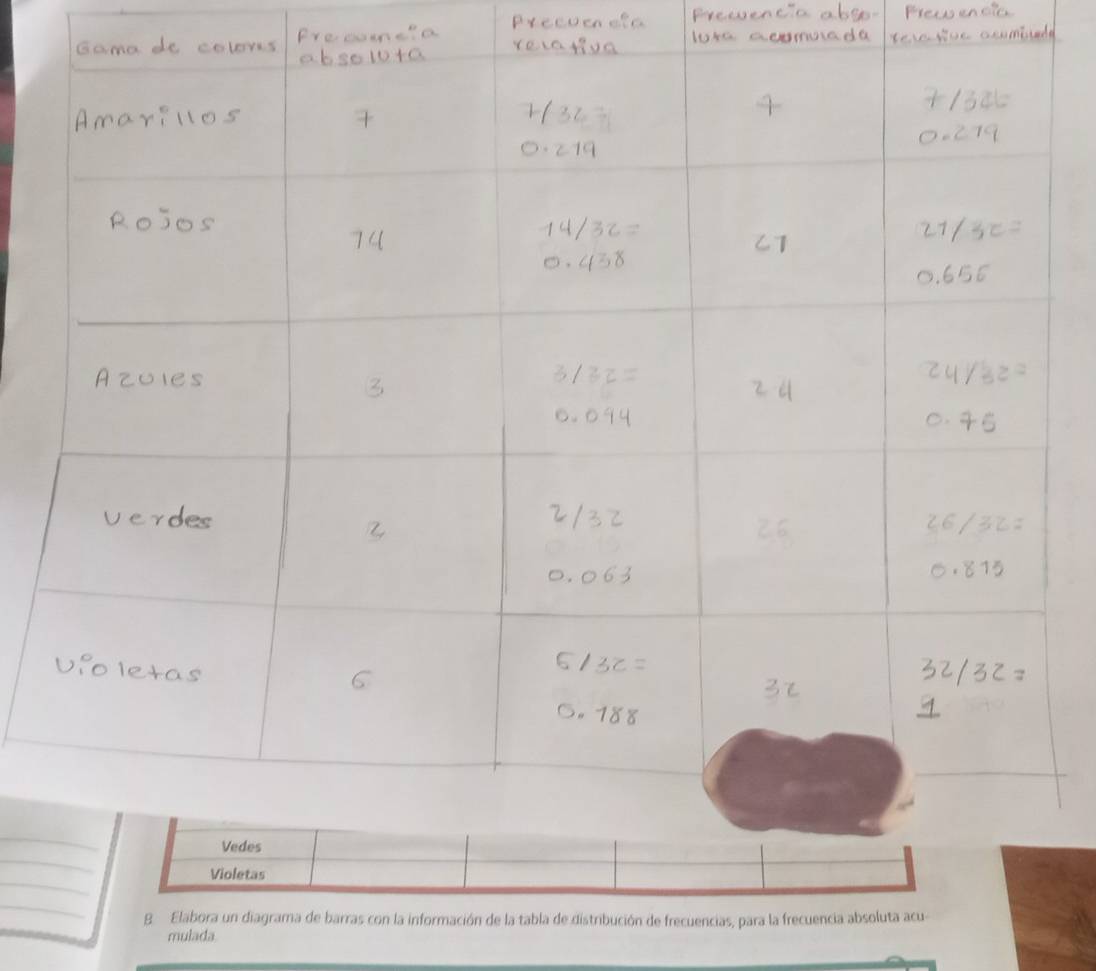 Gama de colores
Frecuencia
absoluta
Frecuencia
relativa
Frecuencia abso-
luta acumulada
Frecuencia
relative acumulada
Amarillos
7
7/32=
0.219
7
7/32=
0.219
Rojos
14
14/32=
0.438
21
21/32=
0.656
Azules
3
3/32=
0.094
24
24/32=
0.75
verdes
2
2/32
0.063
26
26/32=
0.815
violetas
6
6/32=
0.188
32
32/32=
1
Vedes
Violetas
B Elabora un diagrama de barras con la información de la tabla de distribución de frecuencias, para la frecuencia absoluta acu-
mulada.